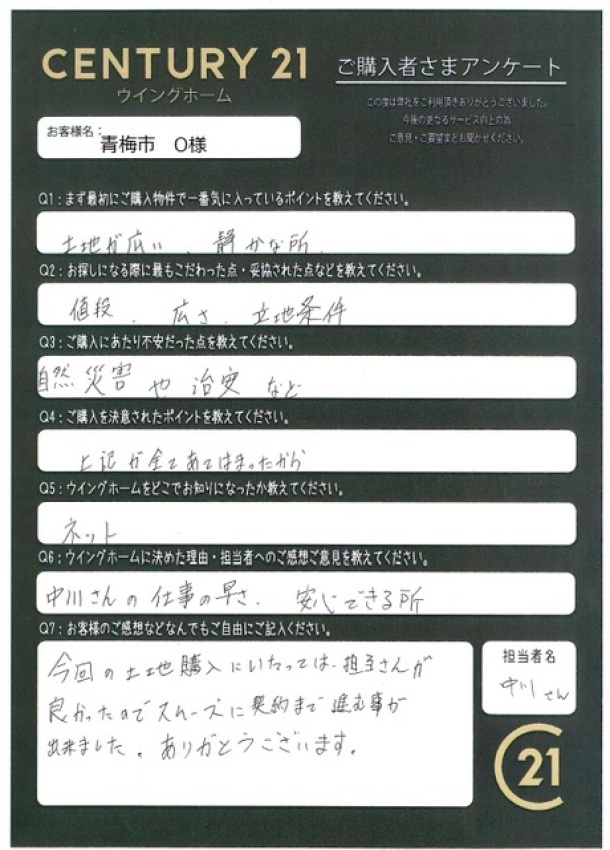 CENTURY 21
ウイングホーム
ご購入者さまアンケート
この度は弊社をご利用頂きありがとうございました。
今後の更なるサービス向上の為
ご意見・ご要望をお聞かせください。
お客様名:
青梅市 O様
Q1:まず最初にご購入物件で一番気に入っているポイントを教えてください。
土地が広い、静かな所、
Q2:お探しになる際に最もこだわった点・妥協された点などを教えてください。
値段、広さ、立地条件
Q3:ご購入にあたり不安だった点を教えてください。
自然災害や治安など
Q4:ご購入を決意されたポイントを教えてください。
上記が全てあてはまったから
Q5:ウイングホームをどこでお知りになったか教えてください。
ネット
Q6:ウイングホームに決めた理由・担当者へのご感想ご意見を教えてください。
中川さんの仕事の早さ、安心できる所
Q7:お客様のご感想などなんでもご自由にご記入ください。
今回の土地購入にいたっては、担当さんが
良かったのでスムーズに契約まで進む事が
出来ました。ありがとうございます。
担当者名
中川さん
C21